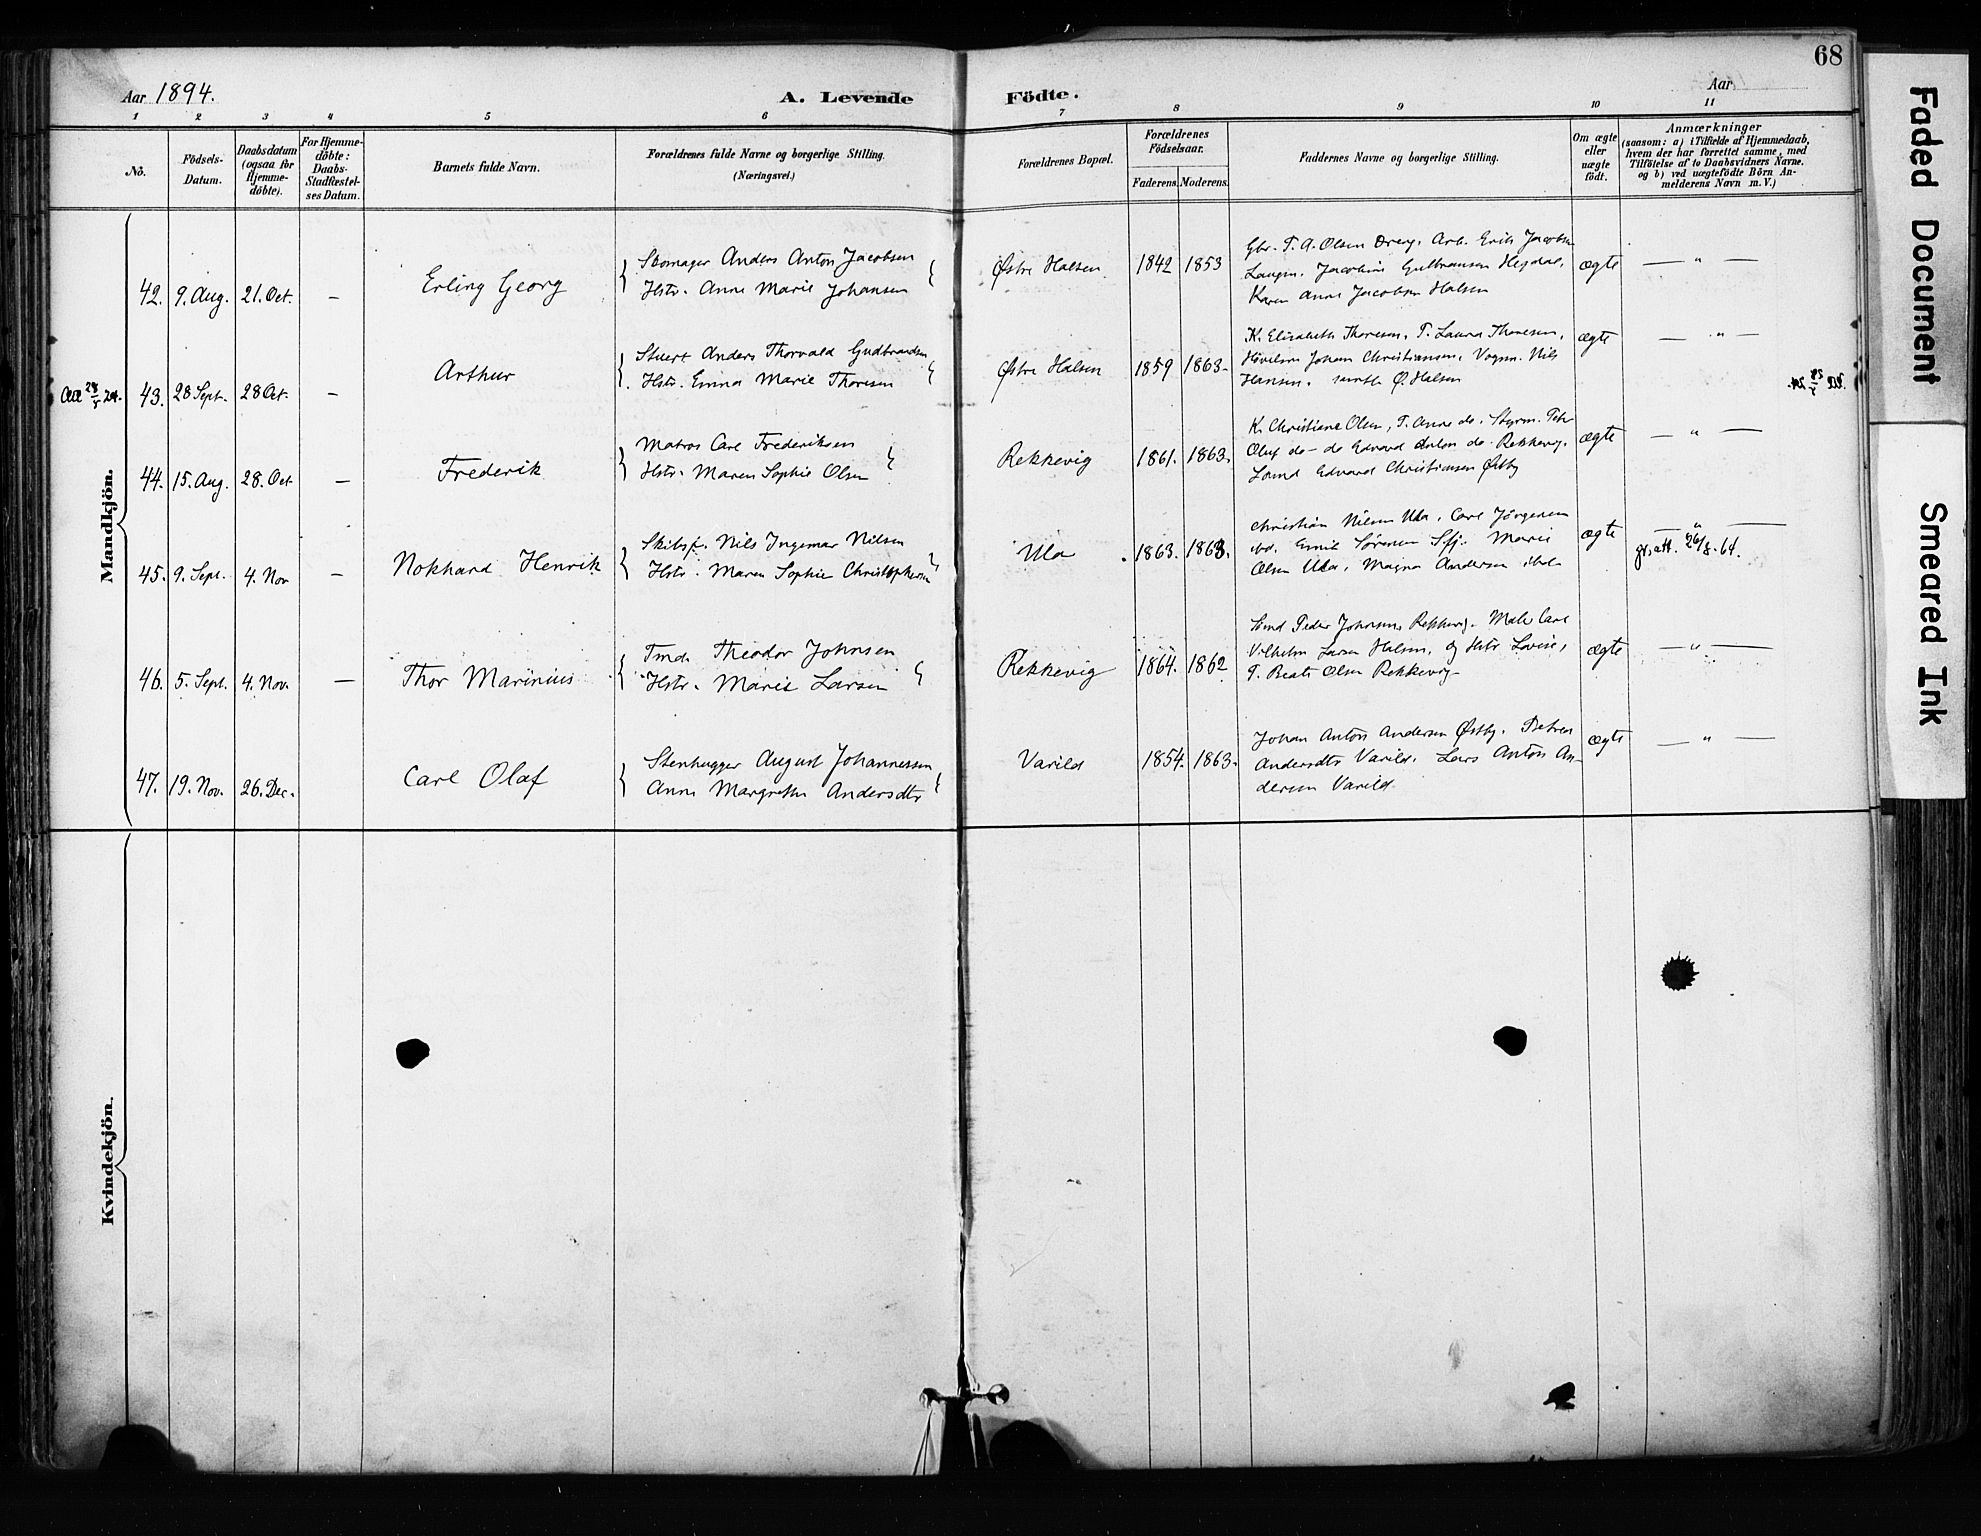 68
Aar 1894.
A. Levende Födte.
Aar
1 2 3 4 5 6 7 8 9 10 11
No.
Födsels-Datum.
Daabsdatum (ogsaa for Hjemme-döbte).
For Hjemme-döbte: Daabs-Stadfæstel-ses Datum.
Barnets fulde Navn.
Forældrenes fulde Navne og borgerlige Stilling.
(Næringsvei.)
Forældrenes Bopæl.
Forældrenes Födselsaar.
Faderens. Moderens.
Faddernes Navne og borgerlige Stilling.
Om ægte eller uægte födt.
Anmærkninger
(saasom: a) i Tilfælde af Hjemmedaab,
hvem der har forrettet samme, med
Tilföielse af to Daabsvidners Navne.
og b) ved uægtefödte Börn An-
melderens Navn m. V.)
Mandkjön.
42. 9. Aug. 21. Oct. —
Erling Georg
Skomager Anders Anton Jacobsen
Hstr. Anne Marie Johansen
Østre Halsen
1842 1853
Gbr. T. A. Olsen Arb. Erik Jacobsen
Jacobine Gulbransen
Karen Anne Jacobsen Halsen
ægte
— " —
43. 28 Sept. 28 Oct. —
Arthur
Stuert Anders Thorvald Gudbrandsen
Hstr. Emma Marie Thoresen
Østre Halsen
1859 1863.
K. Elisabeth Thoresen, T. Laura Thoresen,
Johan Christiansen, Vogm. Nils
Hansen, Ø. Halsen
ægte
— " —
44. 15. Aug. 28. Oct. —
Frederik
Matros Carl Frederiksen
Hstr. Maren Sophie Olsen
Rekkevig
1861. 1863.
K. Christiane Olsen, T. Anne do. Styrm. Petr
Oluf do — do Edvard Anton do Rekkevig.
Edvard Christiansen Østby
ægte
— " —
45. 9. Sept. 4. Nov —
Nokhard Henrik
Skibsf. Nils Ingemar Nilsen
Hstr. Maren Sophie Christophersen
Ula
1863. 1863.
Christian Nilsen Ula, Carl Jörgensen
ibd. Emil Sørensen Marie
Olsen Ula, Magna Andersen ibd.
ægte
— " —
26/8. 64.
46. 5. Sept. 4. Nov. —
Thor Marinius
Tmd. Theodor Johnsen
Hstr. Marie Larsen
Rekkevig
1864. 1862
Peder Johnsen Rekkevig. Carl
Vilhelm Larsen Halsen, og Hstr Lovise,
T. Beate Olsen Rekkevig
ægte
— " —
47. 19. Nov. 26. Dec.
Carl Olaf
Stenhugger August Johannessen
Anne Margrethe Andersdtr
Varild
1854. 1863.
Johan Anton Andersen Østby, Petrea
Andersdtr Varild. Lars Anton An-
dersen Varild
ægte
— " —
Kvindekjön.
Faded Document
Smeared Ink